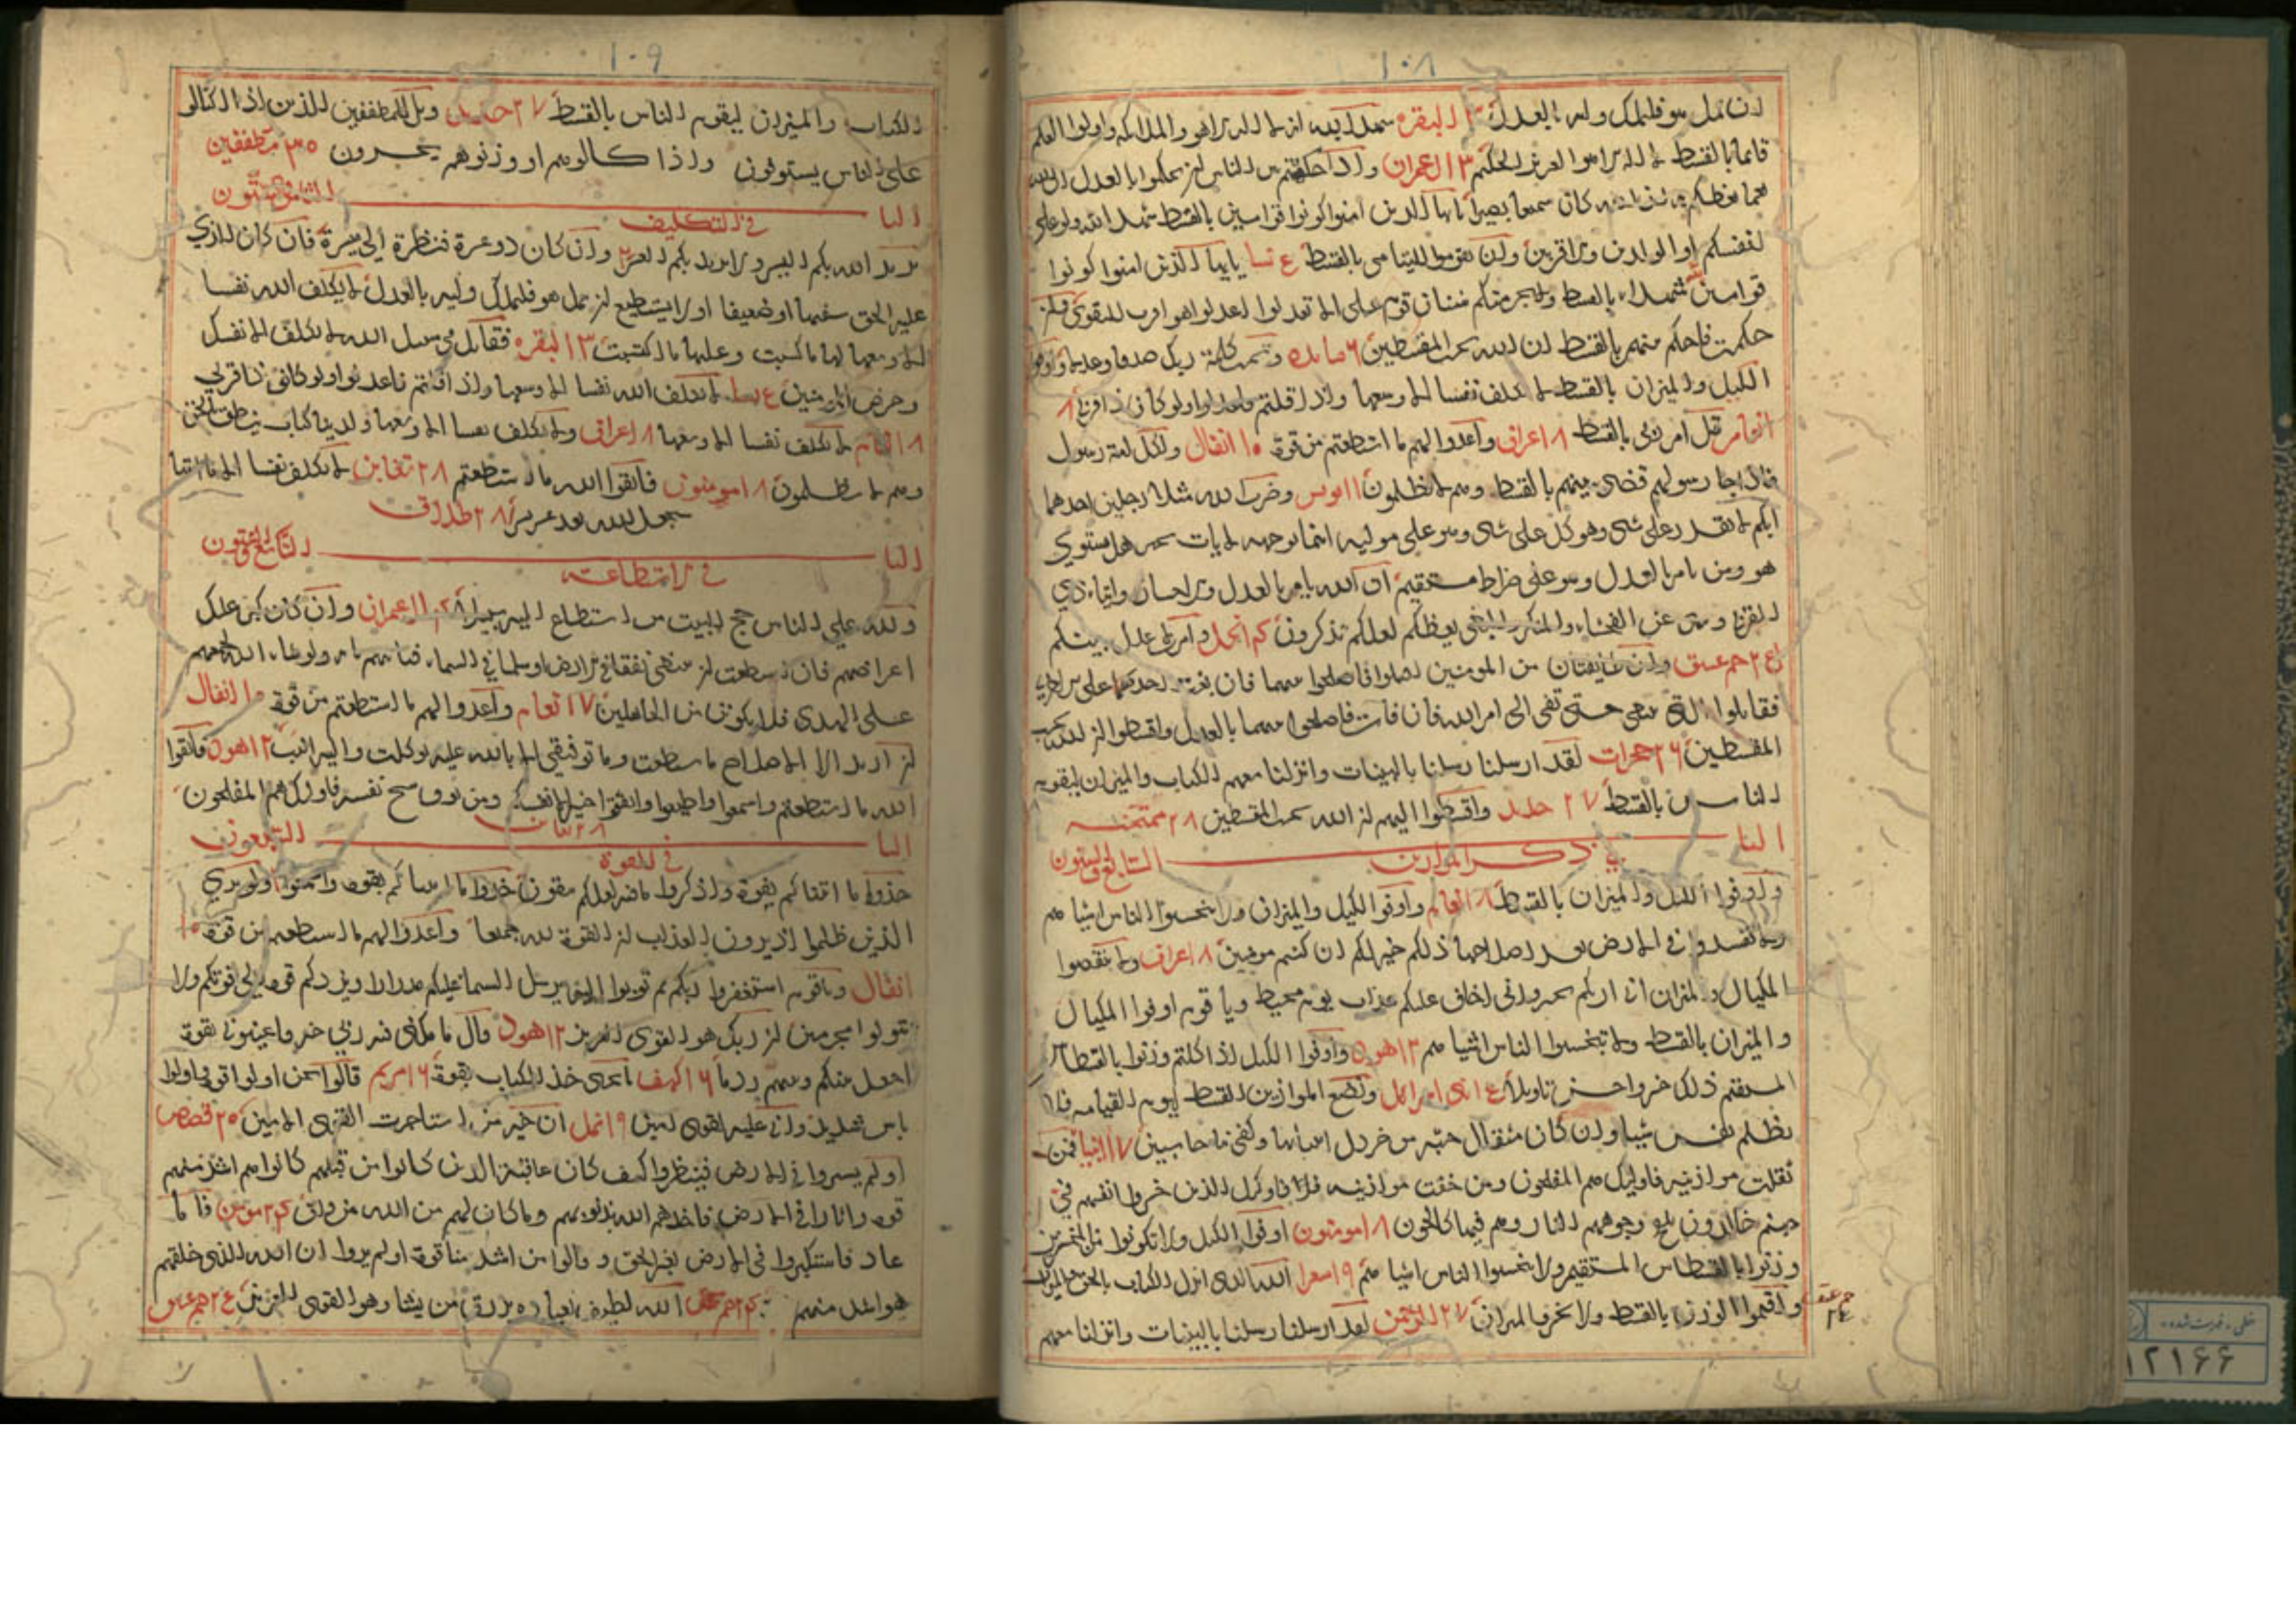 ١٠٨
ان يمل هو فليملل وليه بالعدل ٣ البقره شهد الله انه لا اله الا هو والملائكه واولوا العلم
قائما بالقسط لا اله الا هو العزيز الحكيم ٣ ال عمران واذا حكمتم بين الناس ان تحكموا بالعدل ان الله
نعما يعظكم به ان الله كان سميعا بصيرا يا ايها الذين امنوا كونوا قوامين بالقسط شهداء لله ولو على
انفسكم او الوالدين والاقربين وان تقوموا لليتامى بالقسط ٤ نسا يا ايها الذين امنوا كونوا
قوامين لله شهداء بالقسط ولا يجرمنكم شنان قوم على الا تعدلوا اعدلوا هو اقرب للتقوى وان
حكمت فاحكم بينهم بالقسط ان الله يحب المقسطين ٦ مايده وتمت كلمة ربك صدقا وعدلا واوفوا
الكيل والميزان بالقسط لا نكلف نفسا الا وسعها واذا قلتم فاعدلوا ولو كان ذا قربى ٨
انعام قل امر ربي بالقسط ٨ اعراف واعدوا لهم ما استطعتم من قوة ١٠ انفال ولكل امة رسول
فاذا جا رسولهم قضى بينهم بالقسط وهم لا يظلمون ١١ يونس وضرب الله مثلا رجلين احدهما
ابكم لا يقدر على شي وهو كل على مولیه اينما يوجهه لا يات بخير هل يستوي
هو ومن يامر بالعدل وهو على صراط مستقيم ان الله يامر بالعدل والاحسان وايتاء ذي
القربى وينهى عن الفحشاء والمنكر والبغي يعظكم لعلكم تذكرون نحل وامرت لاعدل بينكم
٢٤ حم عسق وان طايفتان من المومنين اقتتلوا فاصلحوا بينهما فان بغت احديهما على الاخرى
فقاتلوا التي تبغي حتى تفي الى امر الله فان فات فاصلحوا بينهما بالعدل واقسطوا ان الله يحب
المقسطين ٢٦ حجرات لقد ارسلنا رسلنا بالبينات وانزلنا معهم الكتاب والميزان ليقوم
الناس بالقسط ٢٧ حديد واقسطوا اليهم ان الله يحب المقسطين ٢٨ ممتحنه
البا السابع والستون
في ذكر الموازين
واوفوا الكيل والميزان بالقسط ٨ انعام واوفوا الكيل والميزان ولا تبخسوا الناس اشياهم
ولا تفسدوا في الارض بعد اصلاحها ذلكم خير لكم ان كنتم مومنين ٨ اعراف ولا تنقصوا
المكيال والميزان اني اريكم بخير واني اخاف عليكم عذاب يوم محيط ويا قوم اوفوا المكيال
والميزان بالقسط ولا تبخسوا الناس اشياهم ١٢ هود واوفوا الكيل اذا كلتم وزنوا بالقسطاس
المستقيم ذلك خير واحسن تاويلا بني اسرائيل ونضع الموازين القسط ليوم القيامه فلا
تظلم نفس شيا وان كان مثقال حبة من خردل اتينا بها وكفى بنا حاسبين ١٧ انبيا فمن
ثقلت موازينه فاوليك هم المفلحون ومن خفت موازينه فاولئك الذين خسروا انفسهم في
جهنم خالدون تلفح وجوههم النار وهم فيها كالحون ١٨ مومنون اوفوا الكيل ولا تكونوا من المخسرين
وزنوا بالقسطاس المستقيم ولا تبخسوا الناس اشياهم ١٩ شعرا الله الذي انزل الكتاب بالحق والميزان
حم عسق
واقيموا الوزن بالقسط ولا تخسروا الميزان ٢٧ الرحمن لقد ارسلنا رسلنا بالبينات وانزلنا معهم
١٠٩
الكتاب والميزان ليقوم الناس بالقسط ٢٧ حديد ويل للمطففين الذين اذا اكتالو
على الناس يستوفون واذا كالوهم او وزنوهم يخسرون ٣٠ مطففين
البا الثامن والستون
في التكليف
يريد الله بكم اليسر ولا يريد بكم العسر ٢ وان كان ذو عسرة فنظرة الى ميسرة فان كان الذي
عليه الحق سفيها او ضعيفا او لا يستطيع ان يمل هو فليملل وليه بالعدل لا يكلف الله نفسا
الا وسعها لها ما كسبت وعليها ما اكتسبت ٣ البقره فقاتل في سبيل الله لا تكلف الا نفسك
وحرض المومنين نسا لا نكلف الله نفسا الا وسعها واذا قلتم فاعدلوا ولو كان ذا قربى
٨ انعام لا نكلف نفسا الا وسعها ٨ اعراف ولا نكلف نفسا الا وسعها ولدينا كتاب ينطق بالحق
وهم لا يظلمون ١٨ مومنون فاتقوا الله ما استطعتم ٢٨ تغابن لا يكلف نفسا الا ما اتيها
سيجعل الله بعد عسر يسرا ٢٨ طلاق
البا التاسع والستون
في الاستطاعة
ولله على الناس حج البيت من استطاع اليه سبيلا ال عمران وان كان كبر عليك
اعراضهم فان استطعت ان تبتغي نفقا في الارض او سلما في السماء فتاتيهم باية ولو شاء الله لجمعهم
على الهدى فلا تكونن من الجاهلين ١٧ انعام واعدوا لهم ما استطعتم من قوة ١٠ انفال
ان اريد الا الاصلاح ما استطعت وما توفيقي الا بالله عليه توكلت واليه انيب ١٢ هود فاتقوا
الله ما استطعتم واسمعوا واطيعوا وانفقوا خيرا لانفسكم ومن يوق شح نفسه فاوليك هم المفلحون
٢٨ تغابن
البا السبعون
في القوة
خذوا ما اتيناكم بقوة واذكروا ما فيه لعلكم تتقون خذوا ما اتيناكم بقوة واسمعوا ولو يرى
الذين ظلموا اذ يرون العذاب ان القوة لله جميعا واعدوا لهم ما استطعتم من قوة ١٠
انفال ويا قوم استغفروا ربكم ثم توبوا اليه يرسل السما عليكم مدرارا ويزدكم قوة الى قوتكم ولا
تتولوا مجرمين ان ربك هو القوي العزيز ١٢ هود قال ما مكني فيه ربي خير فاعينوني بقوة
اجعل بينكم وبينهم ردما ١٦ كهف يا يحيى خذ الكتاب بقوة ١٦ مريم قالوا نحن اولوا قوة واولوا
باس شديد واني عليه لقوي امين ١٩ نمل ان خير من استاجرت القوي الامين ٢٠ قصص
اولم يسيروا في الارض فينظروا كيف كان عاقبة الذين كانوا من قبلهم كانوا هم اشد منهم
قوة واثارا في الارض فاخذهم الله بذنوبهم وما كان لهم من الله من واق ٢٤ مومن فاما
عاد فاستكبروا في الارض بغير الحق وقالوا من اشد منا قوة اولم يروا ان الله الذي خلقهم
هو اشد منهم الله لطيف بعباده يرزق من يشا وهو القوي العزيز ٢٤ حم عسق
خطی - فهرست شده
١٢١٦٦